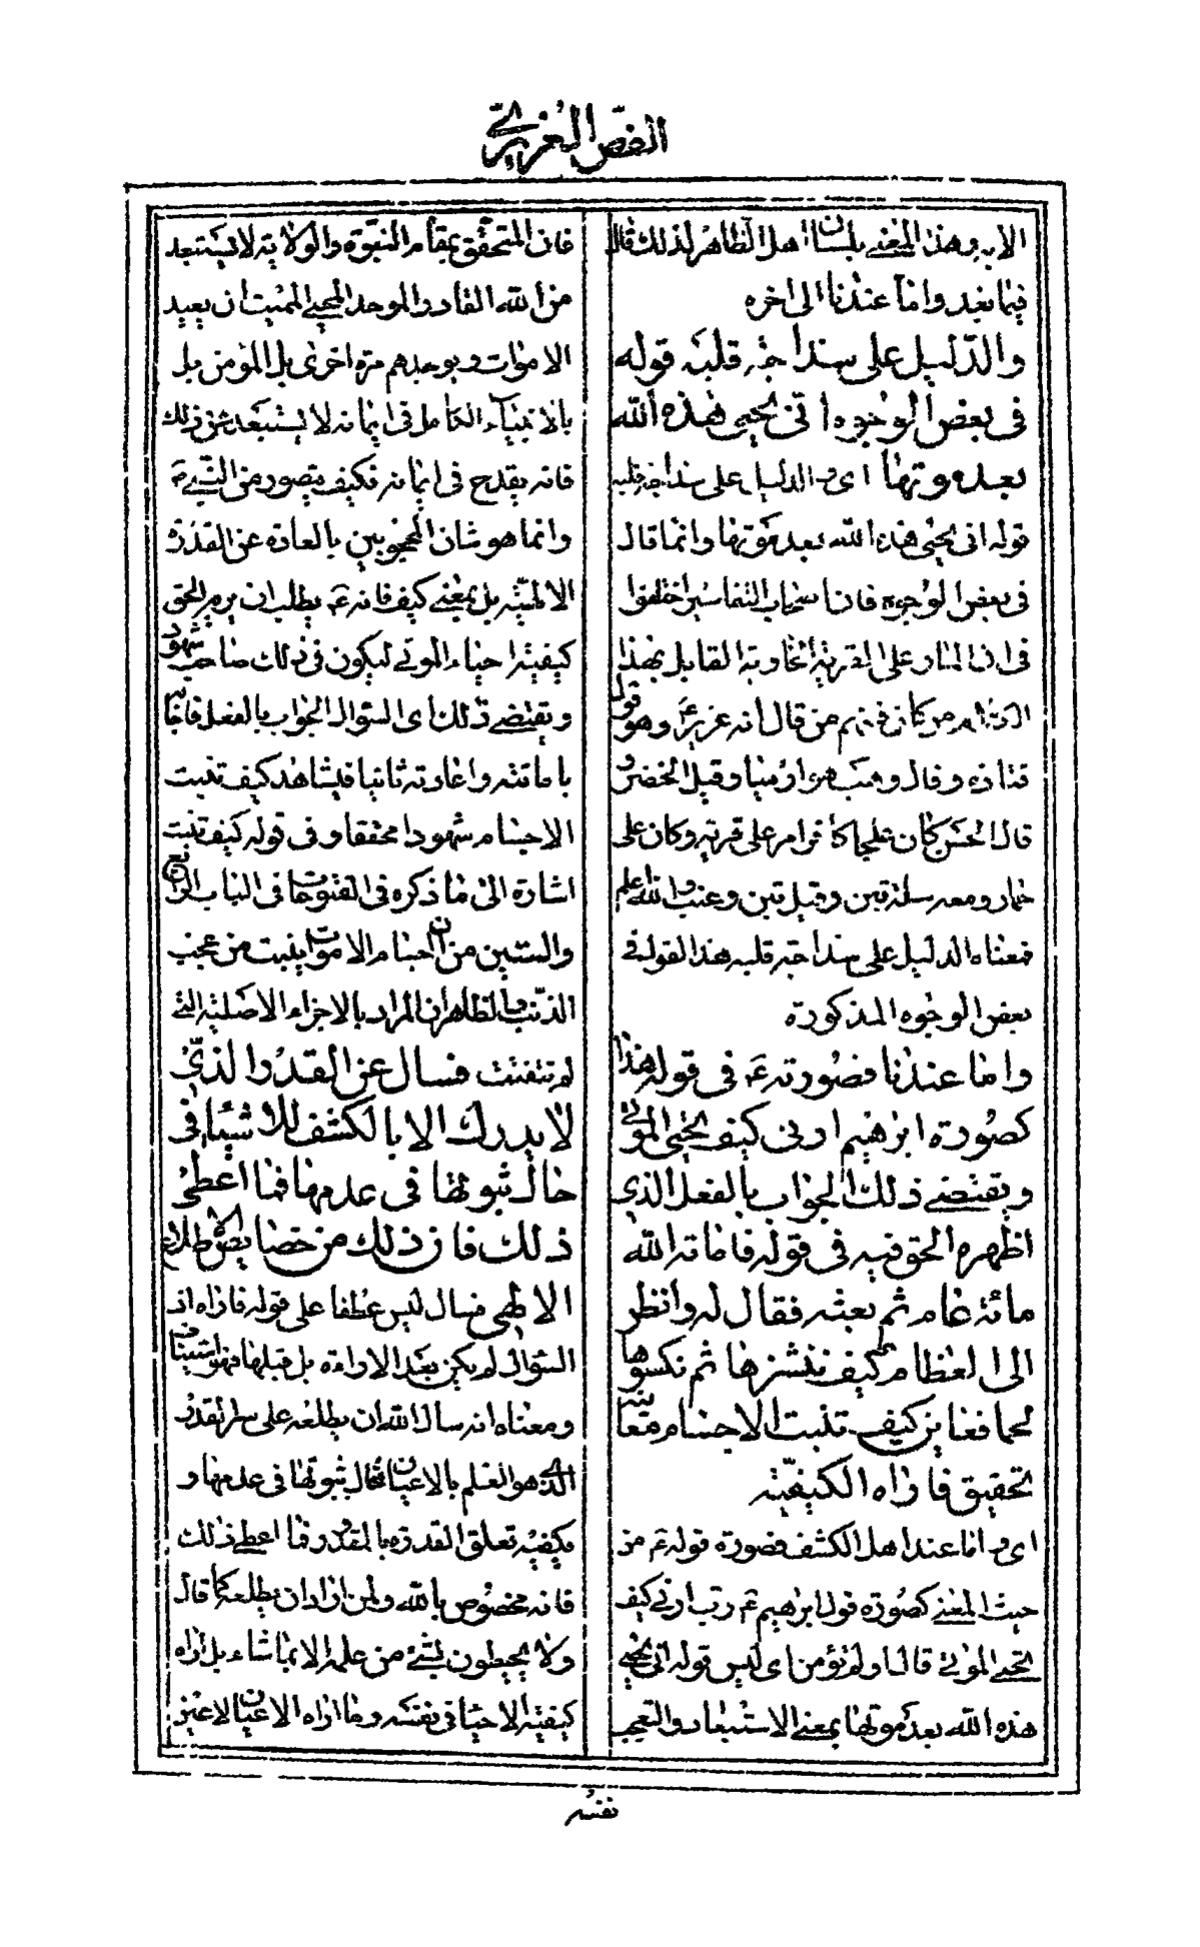 الفص العزيرى
الابه وهذا المعنى بلسان اهل الظاهر لذلك قال
فيما بعد واما عندنا الى اخره
والدليل على سذاجة قلبه قوله
فى بعض الوجوه انى يحيى هذه الله
بعد موتها اى والدليل على سذاجة قلبه
قوله انى يحيى هذه الله بعد موتها وانما قال
فى بعض الوجوه فان اصحاب التفاسير اختلفوا
فى ان المار على القرية الخاوية القايل بهذا
الكلام من كان فمنهم من قال انه عزير ع وهو قول
قتاده وقال وهب هو ارميا وقيل الخضر و
قال الحسن كان علجا كافرا مر على قرية وكان على
حمار ومعه سلة تين وقيل تين وعنب والله اعلم
فمعناه الدليل على سذاجة قلبه هذا القول فى
بعض الوجوه المذكورة
واما عندنا فصورته ع فى قوله هذا
كصورة ابرهيم ارنى كيف يحيى الموتى
ويقتضى ذلك الجواب بالفعل الذى
اظهره الحق فيه فى قوله فاماته الله
مائة عام ثم بعثه فقال له وانظر
الى العظام كيف ننشزها ثم نكسوها
لحما فعاين كيف تنبت الاجسام معاينة
تحقيق فاراه الكيفية
اى واما عند اهل الكشف فصورة قوله ع من
حيث المعنى كصورة قول ابرهيم ع رب ارنى كيف
تحيى الموتى قال اولم تؤمن اى ليس قوله انى يحيى
هذه الله بعد موتها بمعنى الاستبعاد والتعجب
فان المتحقق بمقام النبوة والولاية لا يستبعد
من الله القادر الموجد المحيى المميت ان يعيد
الاموات ويوجدهم مرة اخرى بل المؤمن بل
بالانبياء الكامل فى ايمانه لا يستبعد عن ذلك
فانه يقدح فى ايمانه فكيف يتصور من النبى ع
وانما هو شان المحجوبين بالعادة عن القدرة
الالهية بل بمعنى كيف فانه ع يطلب ان يريه الحق
كيفية احياء الموتى ليكون فى ذلك صاحب شهود
ويقتضى ذلك اى السؤال الجواب بالفعل فاجا
باماتته واعادته ثانيا فيشاهد كيف تنبت
الاجسام شهودا محققا وفى قوله كيف تنبت
اشارة الى ما ذكره فى الفتوحات فى الباب الرابع
والستين من ان اجسام الاموات ينبت من عجب
الذنب والظاهر ان المراد بالاجزاء الاصلية التى
لم تتفتت فسال عن القدر الذى
لا يدرك الا بالكشف للاشياء فى
حال ثبوتها فى عدمها فما اعطى
ذلك فان ذلك من خصايص الاطلاع
الالهى فسال ليس عطفا على قوله فاراه اذ
السؤال لم يكن بعد الاراءة بل قبلها فهو استيناف
ومعناه انه سال الله ان يطلعه على سر القدر
الذى هو العلم بالاعيان حال ثبوتها فى عدمها و
بكيفية تعلق القدرة بالمقدور فما اعطى ذلك
فانه مخصوص بالله ولمن اراد ان يطلعه كما قال
ولا يحيطون بشئ من علمه الا بما شاء بل اراه
كيفية الاحيا فى نفسه وما اراه الاعيان لا عين
نفسه